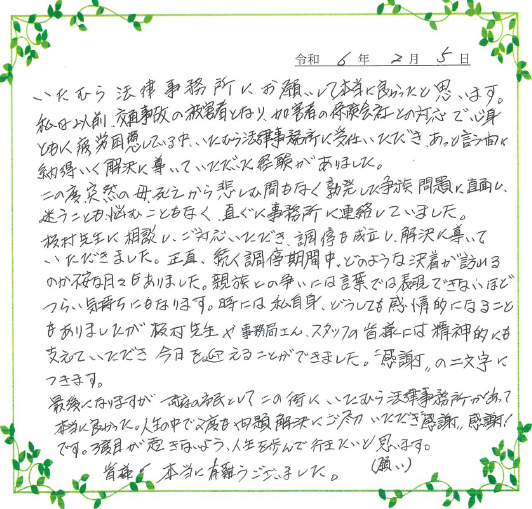 令和 6 年 2 月 5 日
いたむら法律事務所にお願いして本当に良かったと思います。
私は以前、交通事故の被害者となり、加害者の保険会社との対応で心身
ともに疲労困憊している中、いたむら法律事務所に受任いただき、あっと言う間に
納得いく解決に導いていただいた経験がありました。
この度、突然の母の死から悲しむ間もなく勃発した争族問題に直面し、
迷うことも悩むこともなく、直ぐに事務所に連絡していました。
板村先生に相談し、ご対応いただき、調停も成立し、解決に導いて
いただきました。正直、続く調停期間中、どのような決着が訪れる
のか不安な日々もありました。親族との争いには言葉では表現できないほど
つらい気持ちにもなります。時には私自身、どうしても感情的になること
もありましたが板村先生や事務局さん、スタッフの皆様には精神的にも
支えていただき今日を迎えることができました。"感謝"の二文字に
つきます。
最後になりますが、の市民としてこの街にいたむら法律事務所があって
本当に良かった。人生の中で2度も問題解決にご尽力いただき感謝、感謝!
です。3度目が起きないよう、人生を歩んで行きたいと思います。
(願い)
皆様、本当に有難うございました。